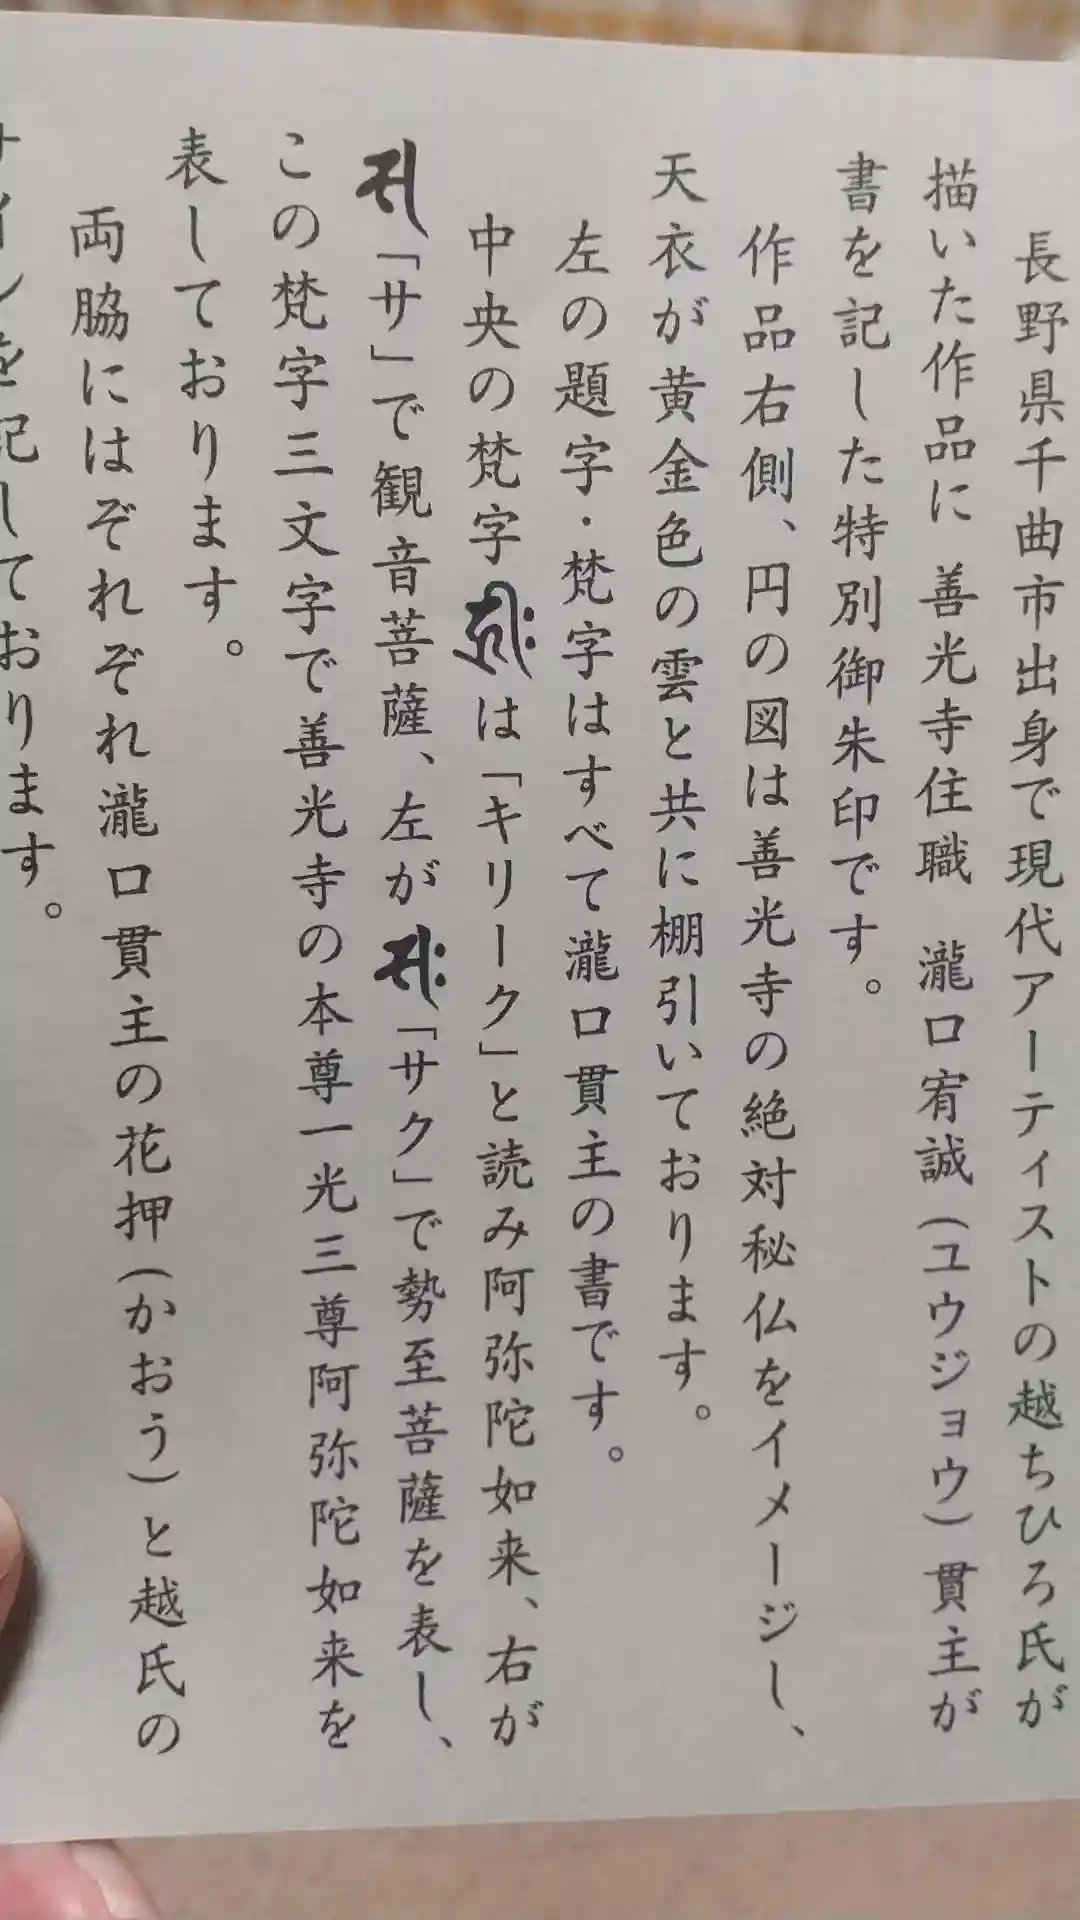 長野県千曲市出身で現代アーティストの越ちひろ氏が
描いた作品に 善光寺住職 瀧口宥誠(ユウジョウ)貫主が
書を記した特別御朱印です。
作品右側、円の図は善光寺の絶対秘仏をイメージし、
天衣が黄金色の雲と共に棚引いております。
左の題字・梵字はすべて瀧口貫主の書です。
中央の梵字𑖮𑖿𑖨𑖱𑖾は「キリーク」と読み阿弥陀如来、右が
𑖭「サ」で観音菩薩、左が𑖭𑖾「サク」で勢至菩薩を表し、
この梵字三文字で善光寺の本尊一光三尊阿弥陀如来を
表しております。
両脇にはぞれぞれ瀧口貫主の花押(かおう)と越氏の
サインを記しております。